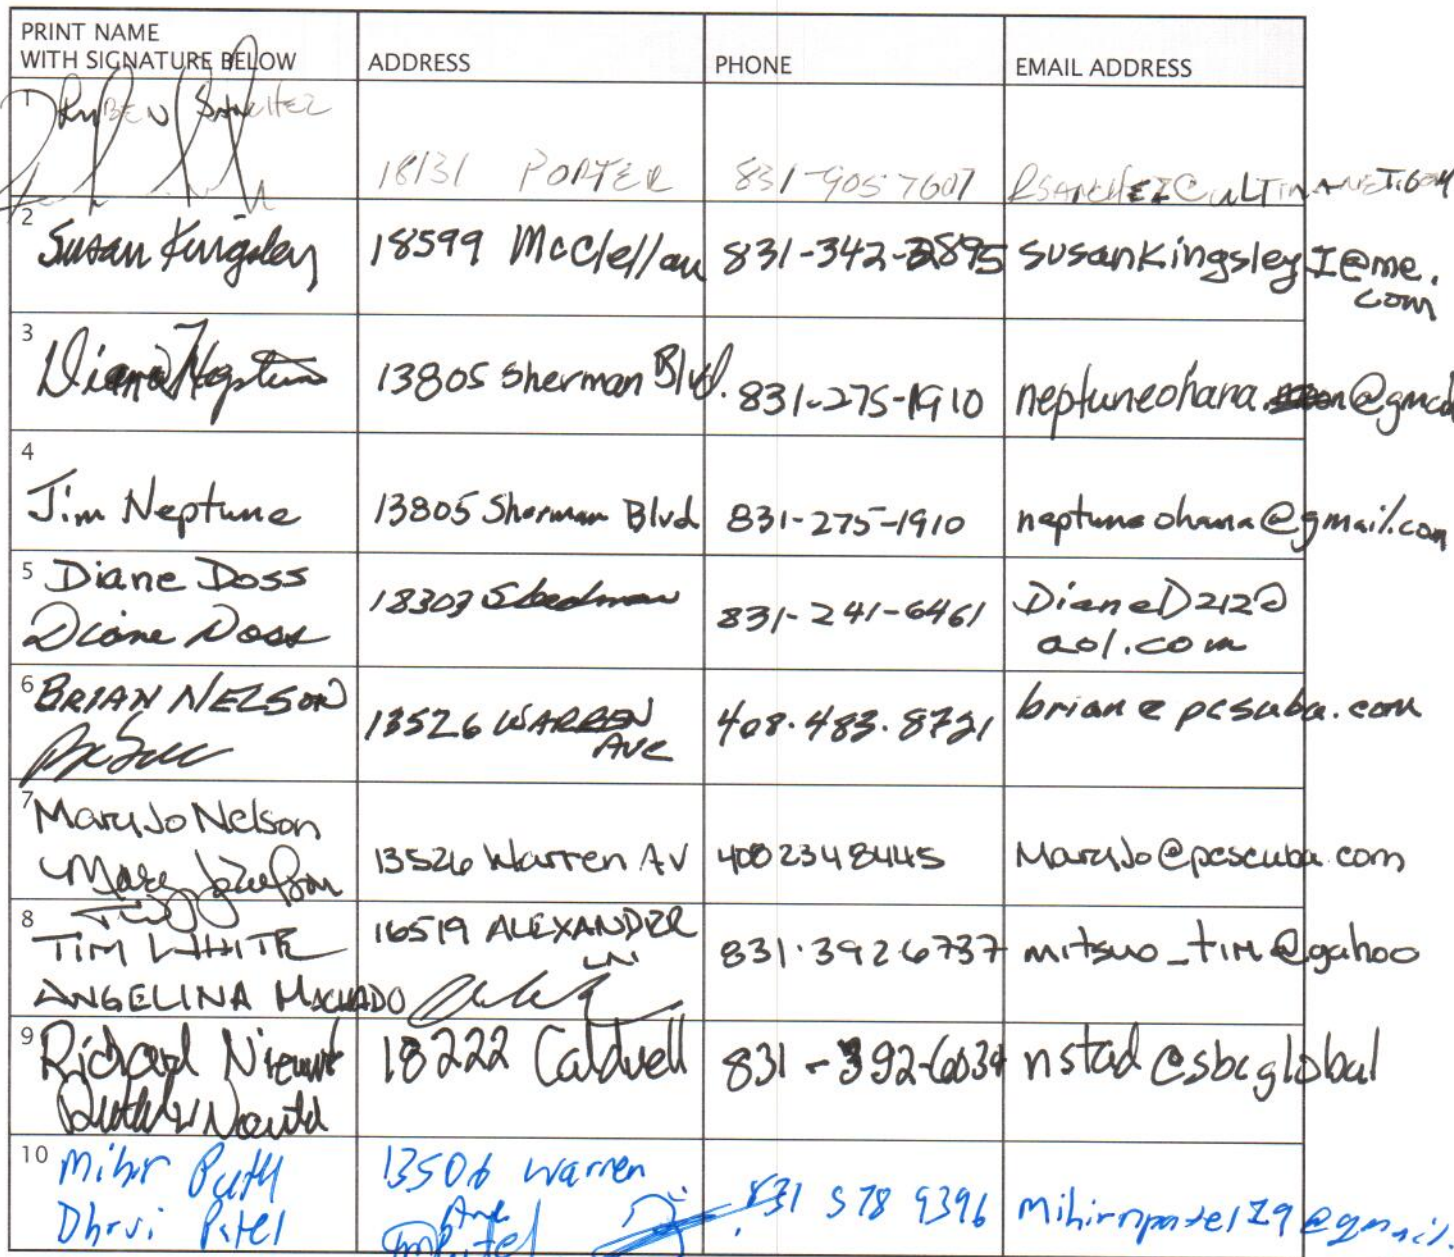 PRINT NAME
WITH SIGNATURE BELOW
ADDRESS
PHONE
EMAIL ADDRESS
1
RUBEN SANCHEZ
18131 PORTER
831-905 7607
2
Susan Kingsley
18599 McClellan
831-342-2895
susankingsley1@me.
com
3
Diana Neptune
13805 Sherman Blvd.
831-275-1910
neptuneohana @gmail
4
Jim Neptune
13805 Sherman Blvd
831-275-1910
neptuneohana@gmail.com
5 Diane Doss
Diane Doss
18303 Stedman
831-241-6461
DianeD212@
aol.com
6 BRIAN NELSON
13526 WARREN
AVE
408.483.8721
brian@pcscuba.com
7
MaryJo Nelson
Mary Jo Nelson
13526 Warren AV
408 234 8445
MaryJo@pcscuba.com
8
TIM WHITE
ANGELINA MACHADO
16519 ALEXANDER
831.392 6737
mitsuo_tim@yahoo
9
Richard
18222 Caldwell
831-392-6034
nstad@sbcglobal
10 Mihir
Dhrvi Patel
13506 Warren
Ave
831 578 9396
mihirnpatel19@gmail.